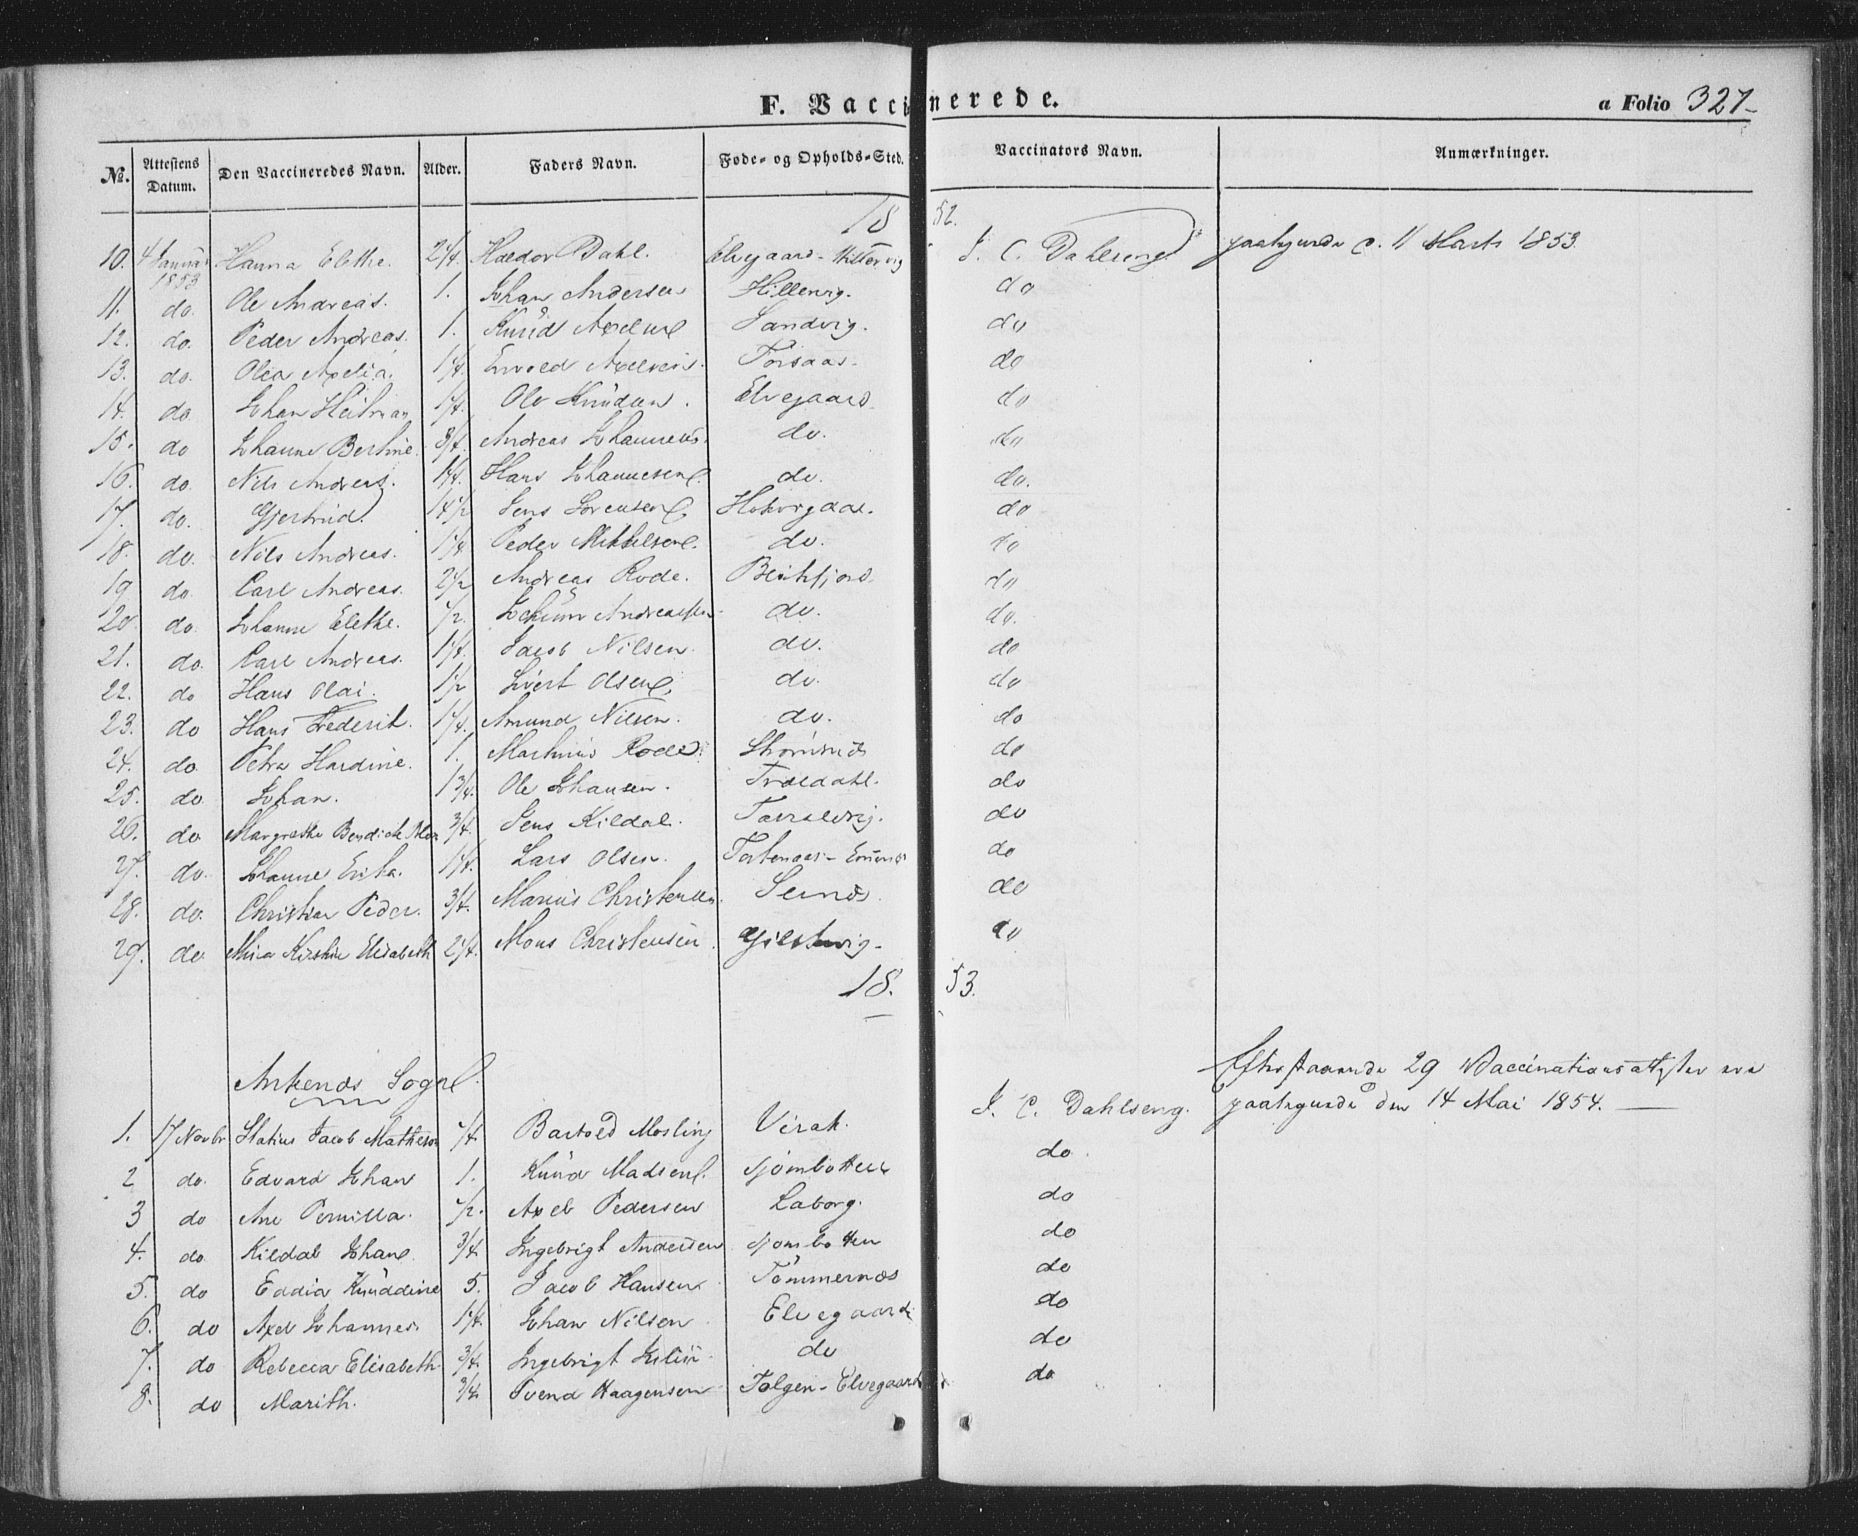 F. Vaccinerede.
a Folio 327
No. Attestens Datum. Den Vaccineredes Navn. Alder. Faders Navn. Føde- og Opholds-Sted. Vaccinators Navn. Anmærkninger.
18 52.
10. 4 Januar 1853 Hanna Elethe. 2 1/4. Haldor Dahl. Elvegaard - J. C. Dahlseng paategnede d. 11 Marts 1853.
11. do. Ole Andreas. 1. Johan Andersen Hillervig. do
12. do. Peder Andreas. 1. Knud Axelsen Sandvig. do
13. do. Olea Axelia. 1 1/4. Axelsen Forsaas. do
14. do Johan 1 1/4. Ole Knudsen. Elvegaard. do
15. do Johanne Bertine. 3/4. Andreas Johannesen do. do
16. do. Nils Andreas. 1 1/4. Hans Johannesen. do. do.
17. do. Gjertrud. 14 1/2 Jens Sørensen. do
18. do. Nils Andreas. 1 1/4 Peder Mikkelsen. do. do
19 do. Carl Andreas. 2 1/2 Andreas Rode. Beisfjord. do
20. do. Johanne Elethe. 1/2. Jochum Andreassen do. do.
21. do. Carl Andreas. 1 1/4. Jacob Nilsen. do. do
22. do Hans Olai. 1 1/2 Sivert Olsen. do. do
23. do Hans Frederik. 1 1/4. Amund Nilsen. do. do
24. do. Petra Hardine. 1. Martinus Rode. do
25. do. Johan. 1 3/4. Ole Johansen. Trældahl. do
26. do Margrethe Bendicte 3/4. Jens Kildal. Taraldvig. do
27. do. Johanne Erika. 1 1/4. Lars Olsen. do
28. do. Christian Peder. 3/4. Marius Christensen. Seines. do
29. do. Mina Kirstine Elisabeth 2 1/4. Mons Christensen. do
18. 53.
Ankenæs Sogn.
Efterstaaende 29 Vaccinationsattester ere
1. 17 Novbr Statius Jacob Matheson 1/4. Bartold Mosling Virak. J. C. Dahlseng. paategnede den 14 Mai 1854.
2 do. Edvard Johan 1. Knud Madsen. Sjombotten do.
3 do Ane Pernilla. 1/2. Axel Pedersen Laborg. do
4. do. Kildal Johan 3/4. Ingebrigt Andersen Sjombotten do
5. do Eddia Knuddine 5. Jacob Hansen Tømmernæs do
6. do Axel Johannes. 1 1/4. Johan Nilsen Elvegaard do
7. do Rebecca Elisabeth. 3/4. Ingebrigt do do
8. do Marith. 3/4. Svend Haagensen Tolgen - Elvegaard do